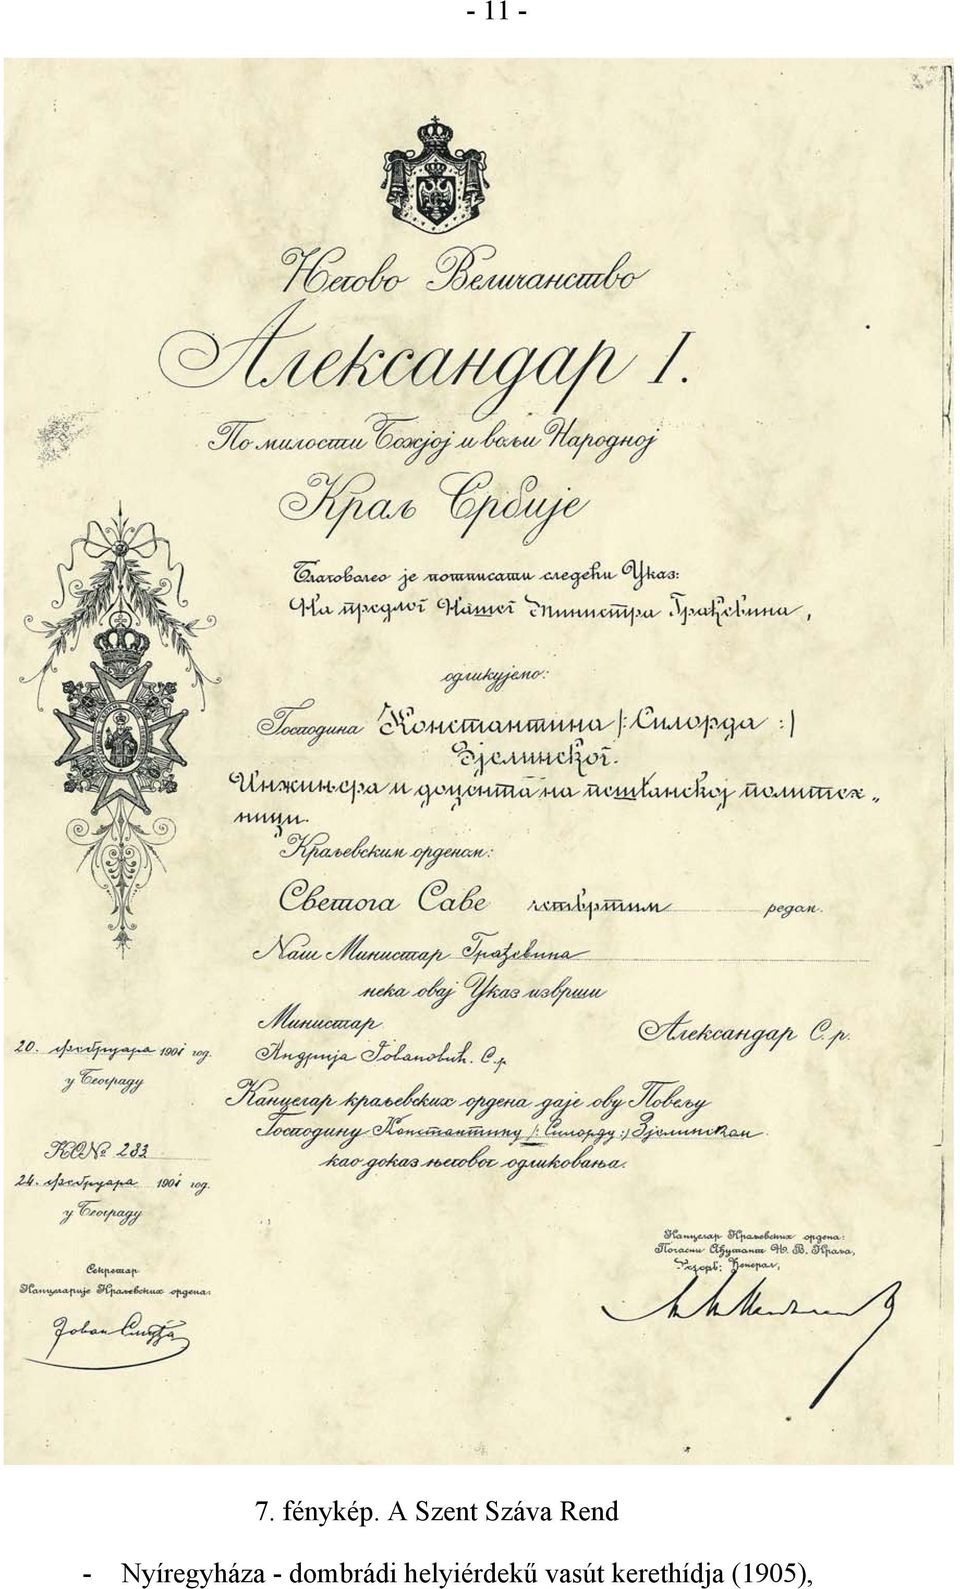 - 11 -
Његово Величанство
Александар I.
По милости Божјој и вољи Народној
Краљ Србије
Благоволео је потписати следећи Указ:
На предлог Нашег Министра Грађевина,
одликујемо:
Господина Константина /:Силорда:/
Зјелинског.
Инжињера и доцента на пештанској политех„
ници.
Краљевским орденом:
Светога Саве четвртим редом.
Наш Министар Грађевина
нека овај Указ изврши
Министар
Андрија Јовановић. С.р.
Александар С.р.
20. фебруара 1901 год.
у Београду
Канцелар краљевских ордена даје ову Повељу
Господину Константину /:Силорду:/ Зјелинском
као доказ његовог одликовања.
КО№ 283
24. фебруара 1901 год.
у Београду
Секретар
Канцеларије Краљевских ордена:
Канцелар Краљевских ордена:
Почасни Ађутант Њ. В. Краља,
Ђенерал,
7. fénykép. A Szent Száva Rend
- Nyíregyháza - dombrádi helyiérdekű vasút kerethídja (1905),